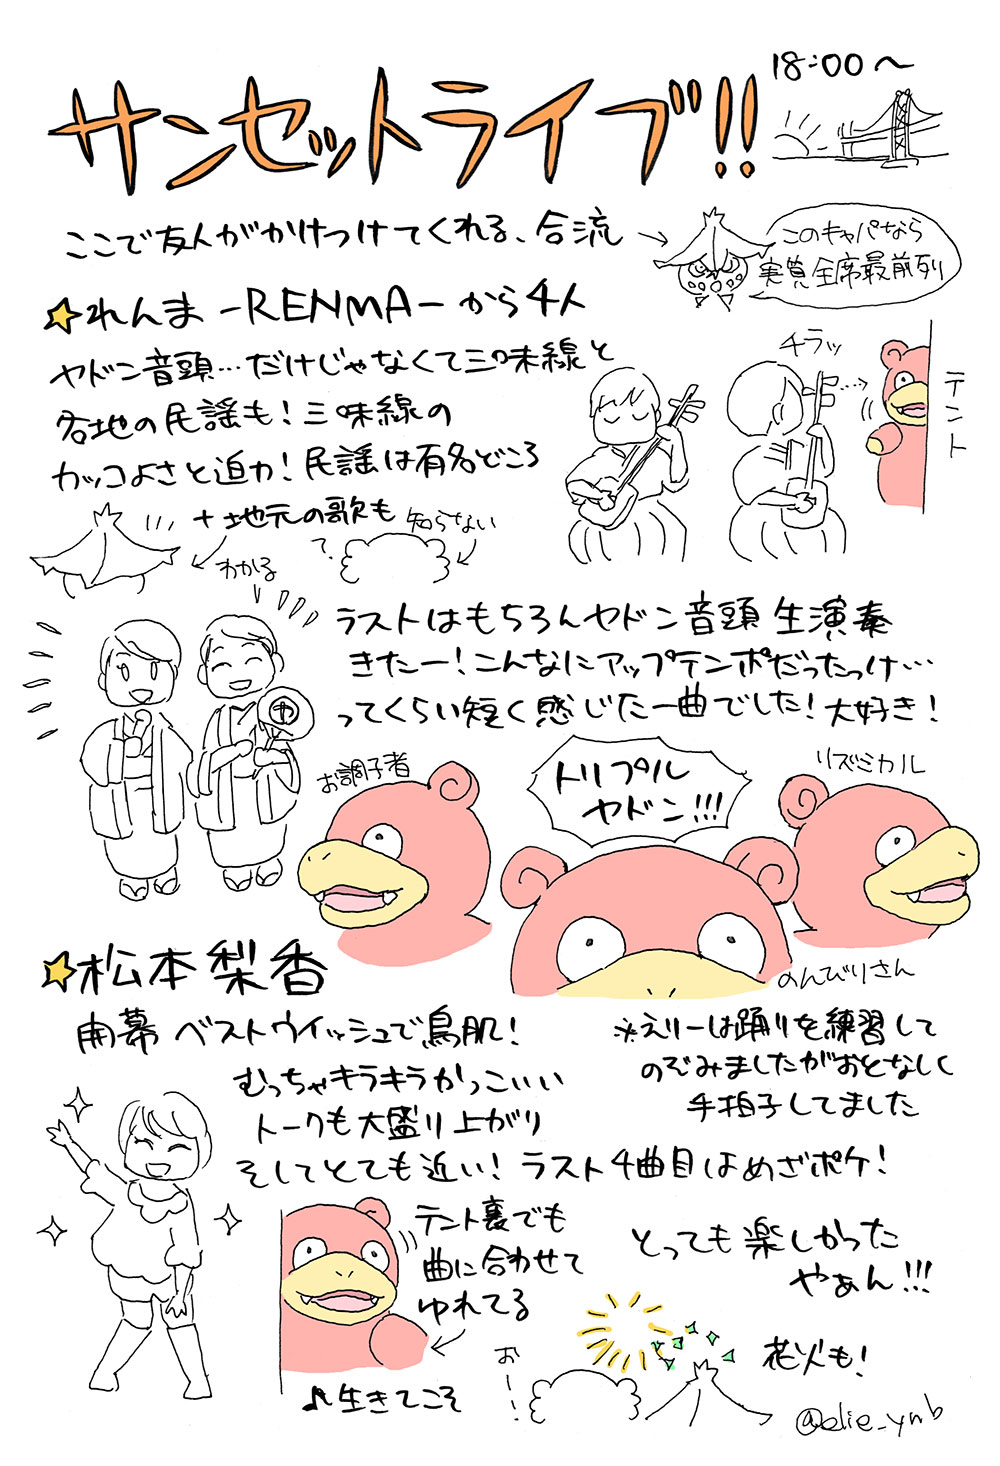 サンセットライブ!!
18:00〜
ここで友人がかけつけてくれる、合流
このキャパなら
実質全席最前列
れんま -RENMA- から4人
ヤドン音頭…だけじゃなくて三味線と
各地の民謡も！三味線の
カッコよさと迫力！民謡は有名どころ
＋地元の歌も
知らない
？
わかる
チラッ
テント
ラストはもちろんヤドン音頭 生演奏
きたー！こんなにアップテンポだったっけ…
ってくらい短く感じた一曲でした！大好き！
や
お調子者
トリプル
ヤドン!!!
リズミカル
のんびりさん
松本梨香
開幕 ベストウイッシュで鳥肌！
むっちゃキラキラかっこいい
トークも大盛り上がり
そしてとても近い！ラスト4曲目はめざポケ！
※えりーは踊りを練習して
のぞみましたがおとなしく
手拍子してました
テント裏でも
曲に合わせて
ゆれてる
♪生きてこそ
とっても楽しかった
やぁん!!!
おー！
花火も！
@elie_ymb